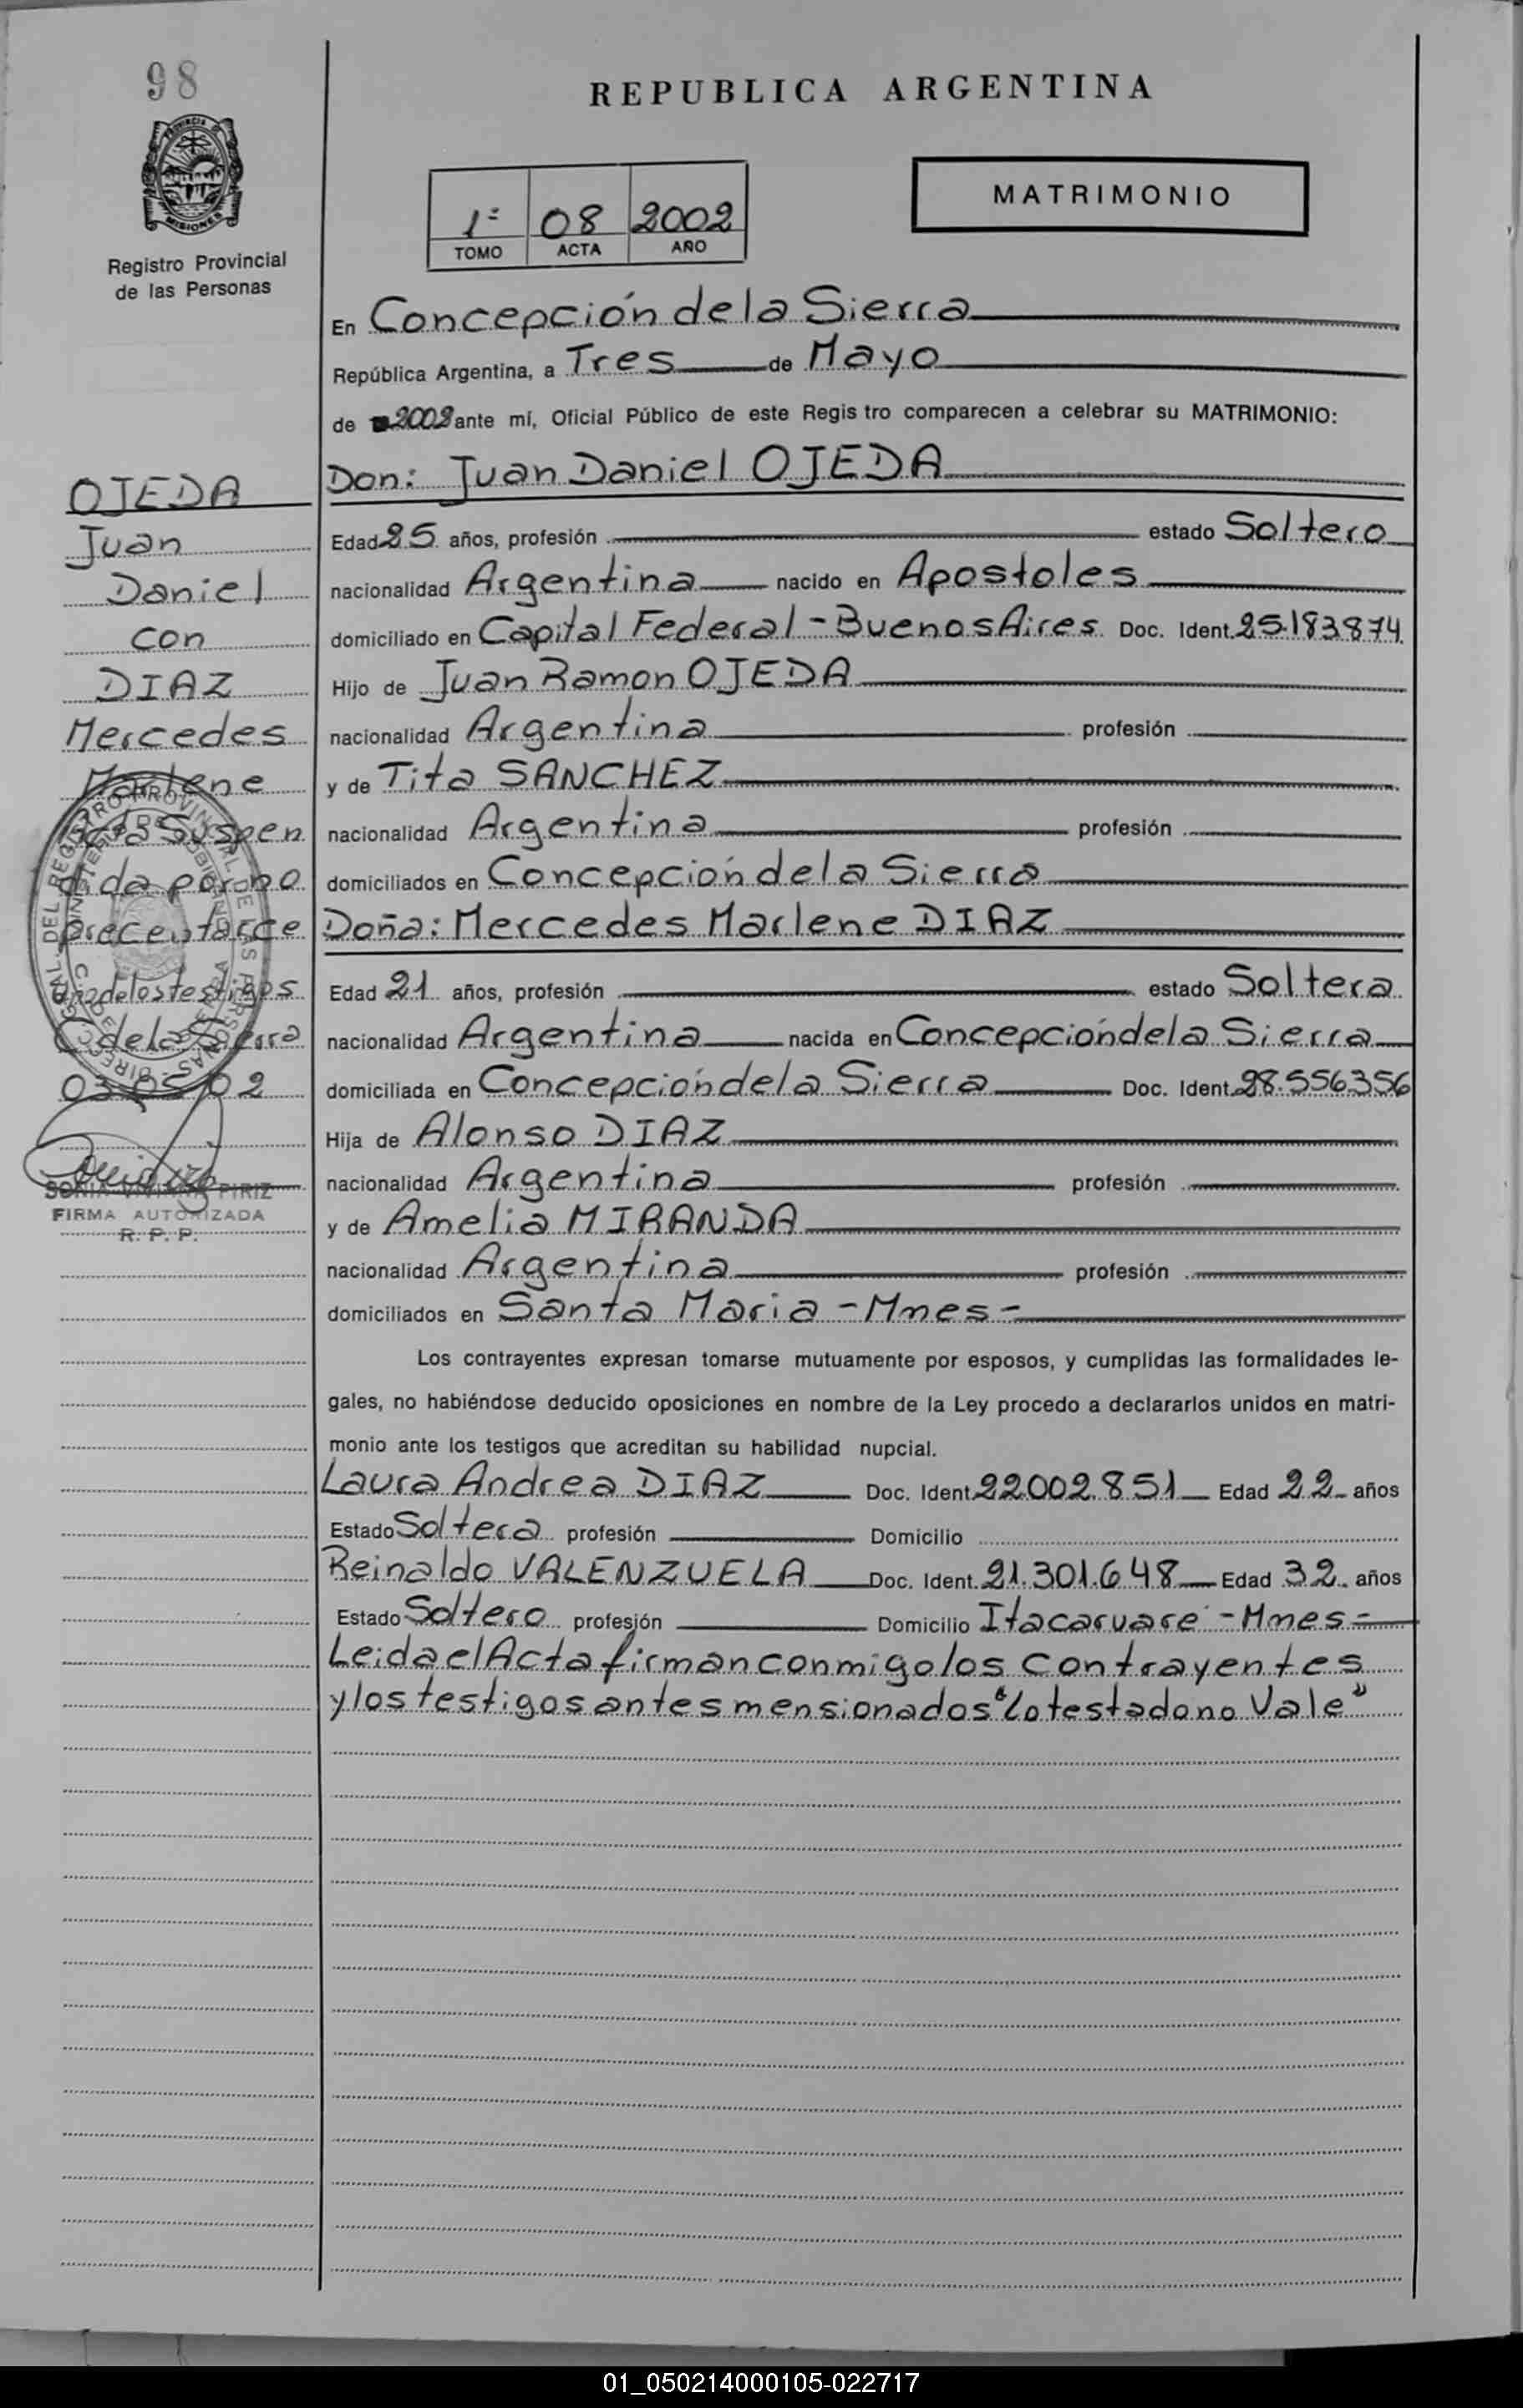 98
REPUBLICA ARGENTINA
MATRIMONIO
1º 08 2002
TOMO ACTA AÑO
Registro Provincial
de las Personas
En Concepción de la Sierra
República Argentina, a Tres de Mayo
de 2002 ante mí, Oficial Público de este Regis tro comparecen a celebrar su MATRIMONIO:
Don: Juan Daniel OJEDA
Edad 25 años, profesión estado Soltero
nacionalidad Argentina nacido en Apostoles
domiciliado en Capital Federal - Buenos Aires Doc. Ident. 25.183.874
Hijo de Juan Ramon OJEDA
nacionalidad Argentina profesión
y de Tita SANCHEZ
nacionalidad Argentina profesión
domiciliados en Concepción de la Sierra
Doña: Mercedes Marlene DIAZ
Edad 21 años, profesión estado Soltera
nacionalidad Argentina nacida en Concepción de la Sierra
domiciliada en Concepción de la Sierra Doc. Ident. 28.556356
Hija de Alonso DIAZ
nacionalidad Argentina profesión
y de Amelia MIRANDA
nacionalidad Argentina profesión
domiciliados en Santa Maria - Mnes -
Los contrayentes expresan tomarse mutuamente por esposos, y cumplidas las formalidades le-
gales, no habiéndose deducido oposiciones en nombre de la Ley procedo a declararlos unidos en matri-
monio ante los testigos que acreditan su habilidad nupcial.
Laura Andrea DIAZ Doc. Ident. 22002.851 Edad 22 años
Estado Soltera profesión Domicilio
Reinaldo VALENZUELA Doc. Ident. 21.301.648 Edad 32 años
Estado Soltero profesión Domicilio Itacaruare - Mnes -
Leida el Acta firman conmigo los contrayentes
y los testigos antes mensionados "Lo testado no Vale"
OJEDA
Juan
Daniel
con
DIAZ
Mercedes
Marlene
Acta Suspen
dida por no
precentarce
uno de los testigos
C. de la Sierra
03-05-02
SONIA VIVIANA PIRIZ
FIRMA AUTORIZADA
R. P. P.
01_050214000105-022717